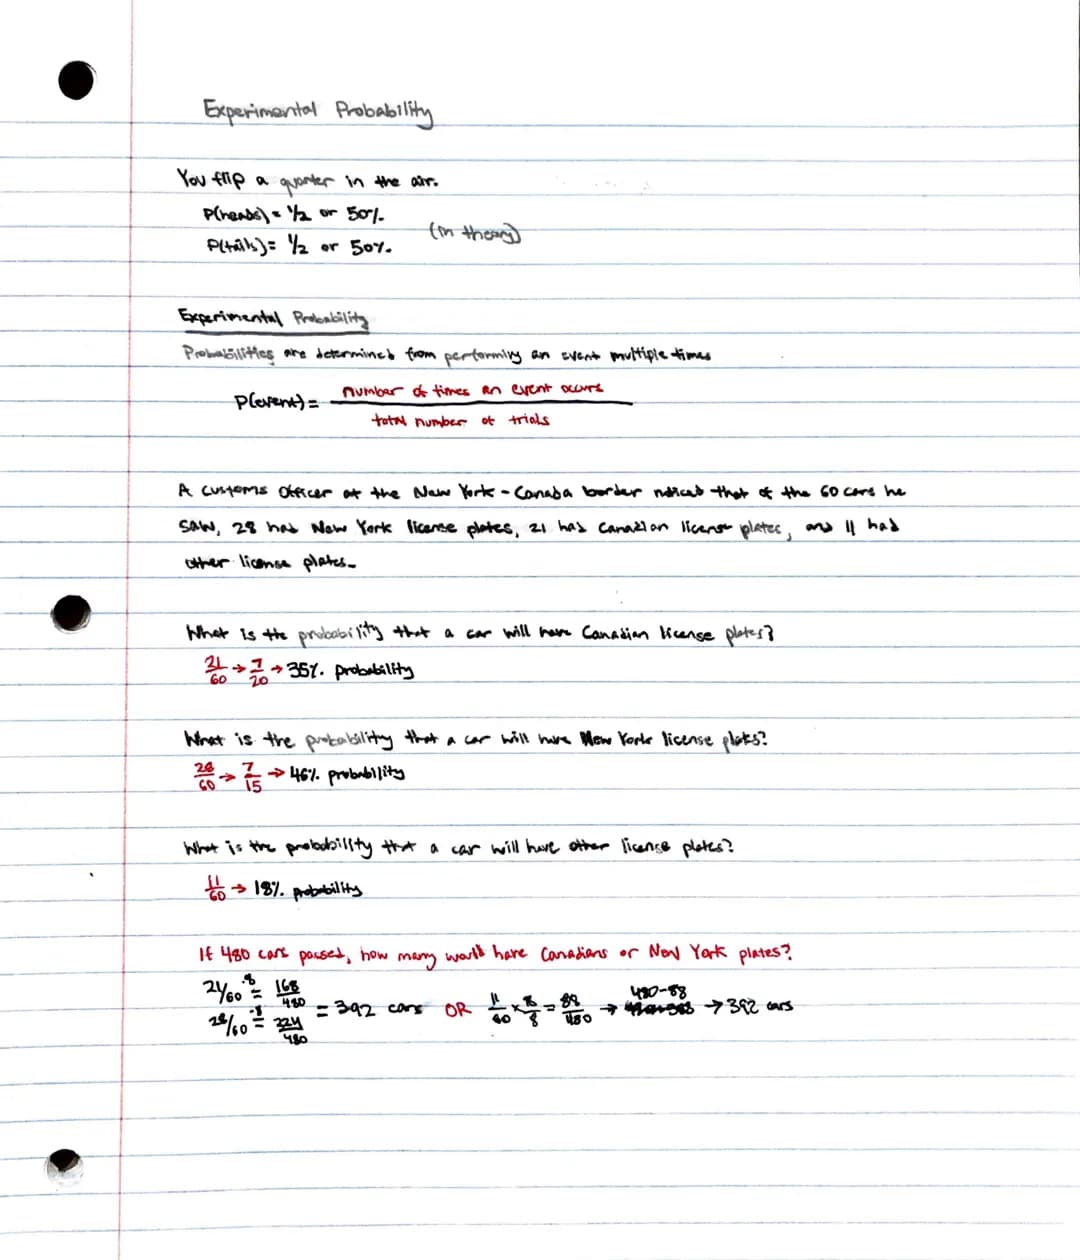 Experimental Probability
You flip a quarter in the air.
P(heads) = 1/2 or 50%.
P(tails) = 1/2 or 50%. (in theory)
Experimental Probability
Probabilities are determined from performing an event multiple times
P(event) = number of times an event occurs
total number of trials
A customs officer at the New York - Canada border noticed that of the 60 cars he
saw, 28 had New York license plates, 21 had Canadian license plates, and 11 had
other license plates.
What is the probability that a car will have Canadian license plates?
21/60 → 7/20 → 35% probability
What is the probability that a car will have New York license plates?
28/60 → 7/15 → 46% probability
What is the probability that a car will have other license plates?
11/60 → 18% probability
If 480 cars passed, how many would have Canadians or New York plates?
21/60 ·8 = 168/480
28/60 ·8 = 224/480 = 392 cars OR 11/60 × 8/8 = 88/480 → 480-88 → 392 cars